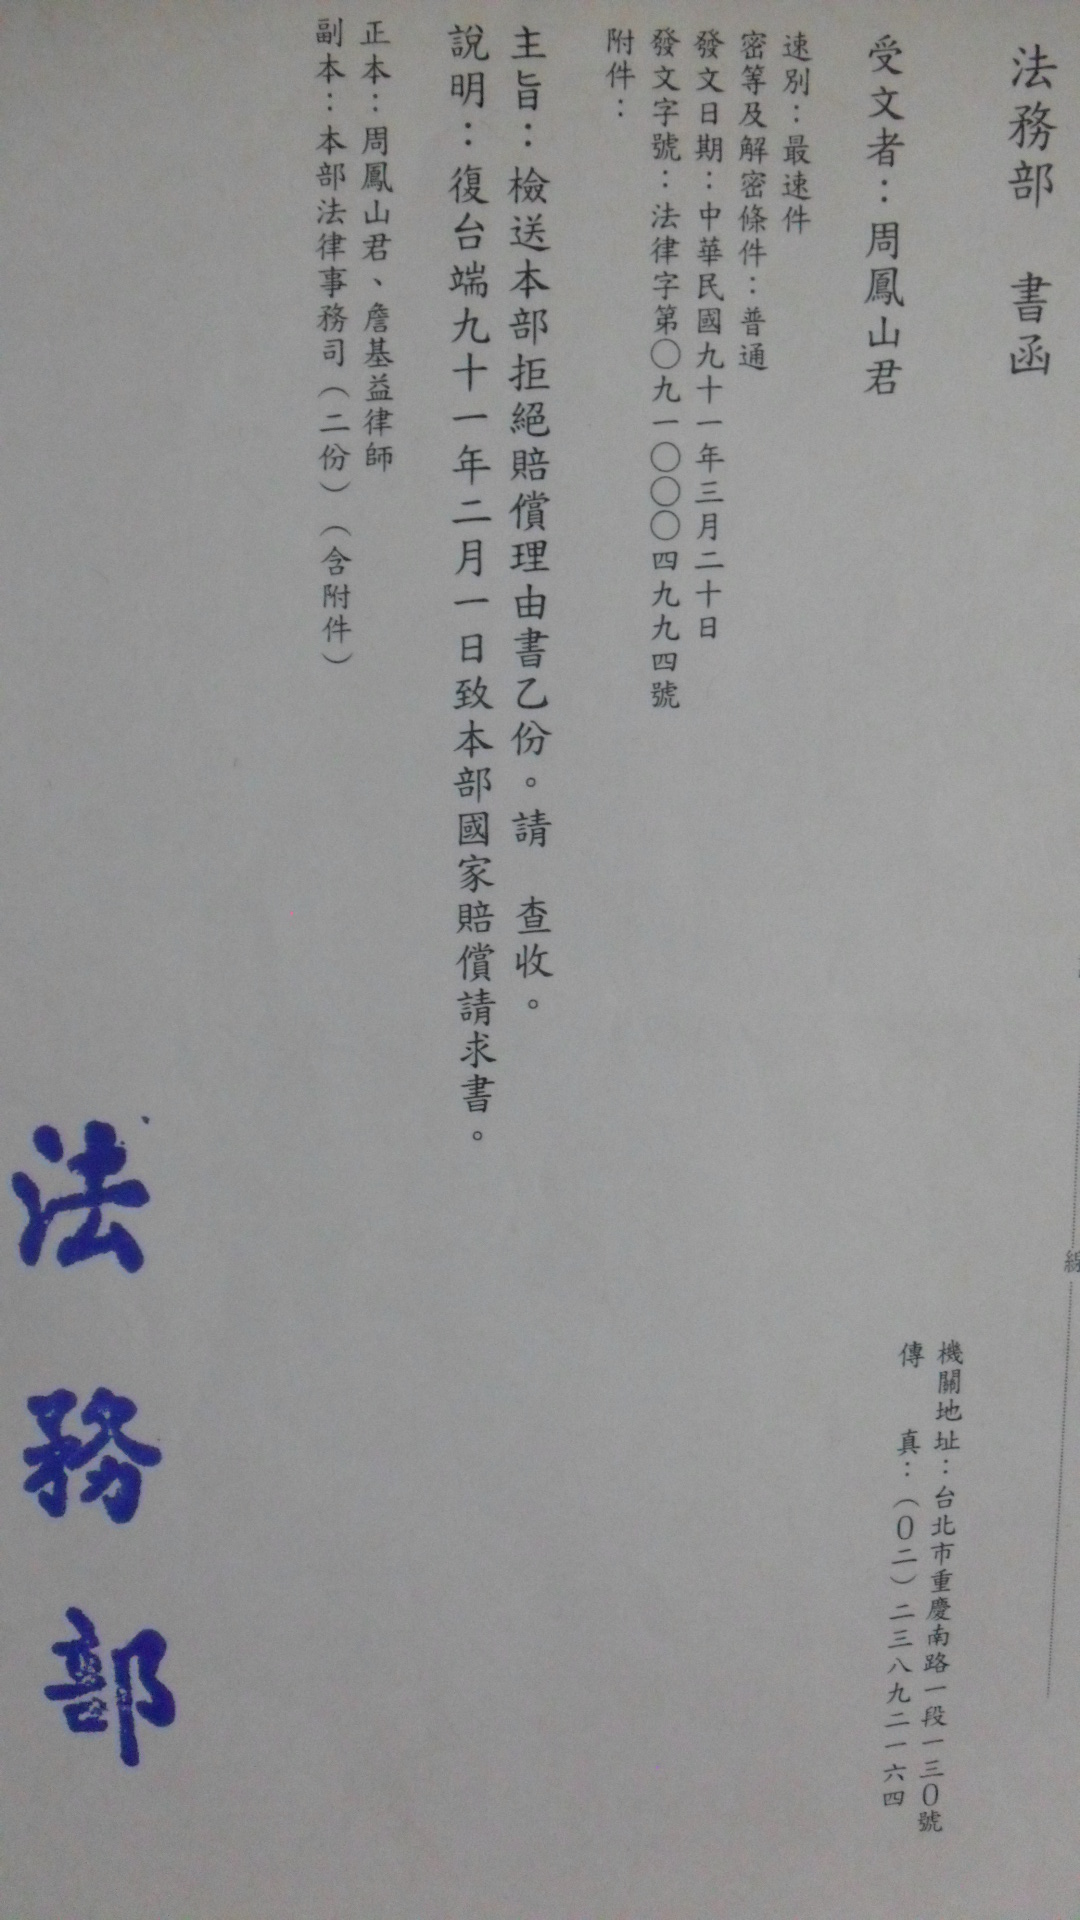 法務部 書函
機關地址：台北市重慶南路一段一三０號
傳 真：（０二）二三八九二一六四
受文者：周鳳山君
速別：最速件
密等及解密條件：普通
發文日期：中華民國九十一年三月二十日
發文字號：法律字第○九一○○○四九九四號
附件：
主旨：檢送本部拒絕賠償理由書乙份。請 查收。
說明：復台端九十一年二月一日致本部國家賠償請求書。
正本：周鳳山君、詹基益律師
副本：本部法律事務司（二份）（含附件）
法務部
線